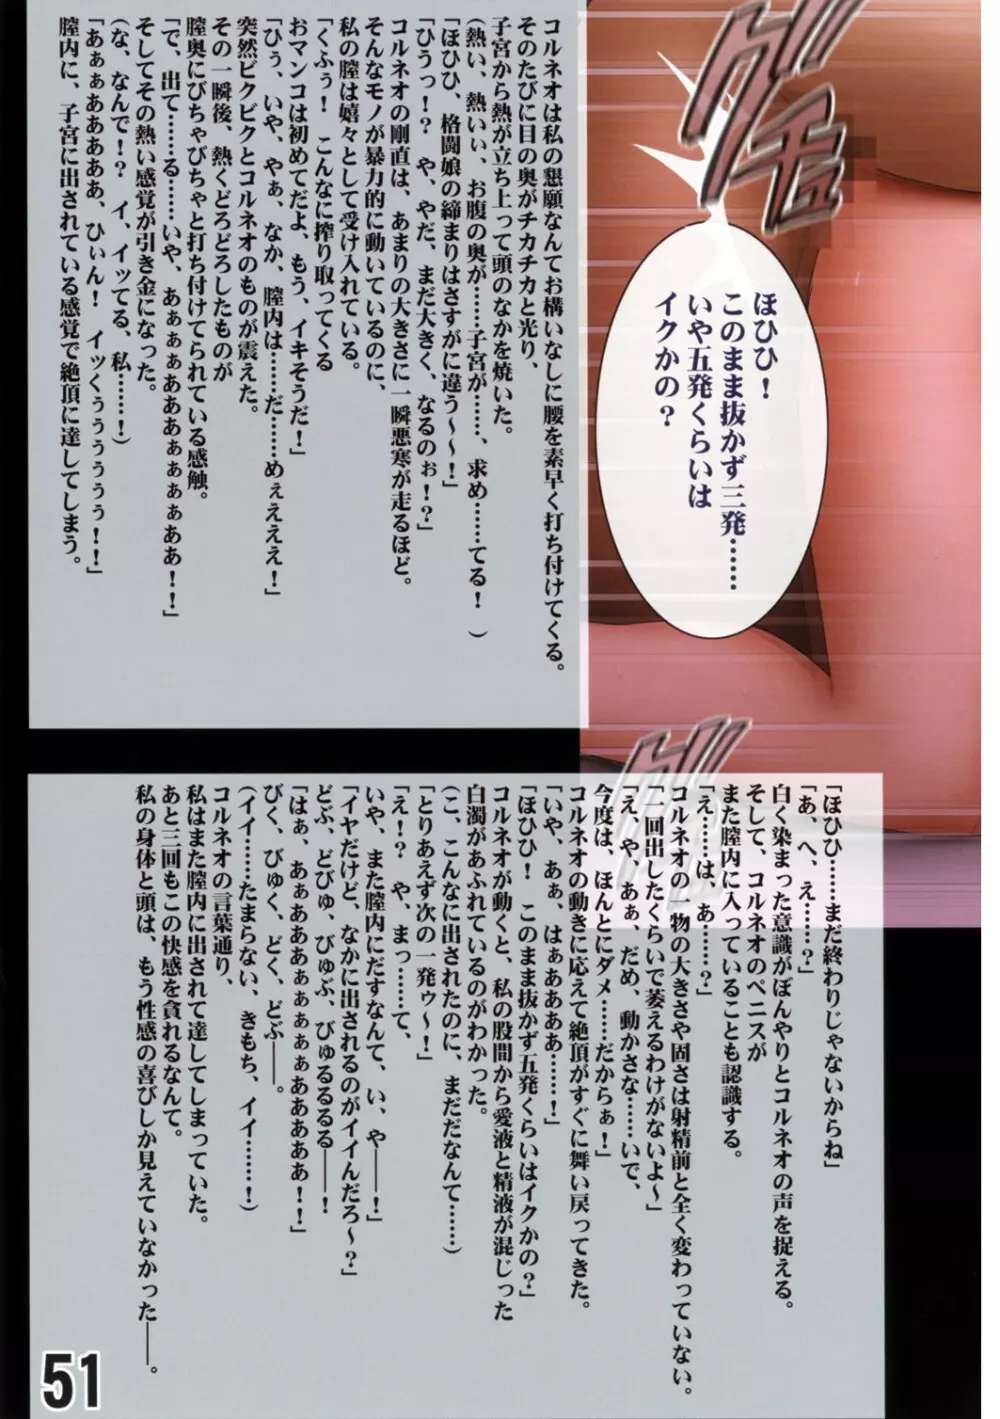 グチュ
ほひひ！
このまま抜かず三発……
いや五発くらいは
イクかの？
コルネオは私の懇願なんてお構いなしに腰を素早く打ち付けてくる。
そのたびに目の奥がチカチカと光り、
子宮から熱が立ち上って頭のなかを焼いた。
（熱い、熱いぃ、お腹の奥が……子宮が……、求め……てる！　）
「ほひひ、格闘娘の締まりはさすがに違う～～！」
「ひうっ！？　や、やだ、まだ大きく、なるのぉ！？」
コルネオの剛直は、あまりの大きさに一瞬悪寒が走るほど。
そんなモノが暴力的に動いているのに、
私の膣は嬉々として受け入れている。
「くふぅ！　こんなに搾り取ってくる
おマンコは初めてだよ、もう、イキそうだ！」
「ひぅ、いや、やぁ、なか、膣内は……だ……めぇえええ！」
突然ビクビクとコルネオのものが震えた。
その一瞬後、熱くどろどろしたものが
膣奥にびちゃびちゃと打ち付けてられている感触。
「で、出て……る……いや、あぁぁぁあああぁぁぁぁああ！！」
そしてその熱い感覚が引き金になった。
（な、なんで！？　イ、イッてる、私……！）
「あぁぁあああああ、ひぃん！　イッくぅぅぅぅぅ！！」
膣内に、子宮に出されている感覚で絶頂に達してしまう。
「ほひひ……まだ終わりじゃないからね」
「あ、へ、え……？」
白く染まった意識がぼんやりとコルネオの声を捉える。
そして、コルネオのペニスが
また膣内に入っていることも認識する。
「え……は、あ……？」
コルネオの一物の大きさや固さは射精前と全く変わっていない。
「一回出したくらいで萎えるわけがないよ～」
「え、や、あぁ、だめ、動かさな……いで、
今度は、ほんとにダメ……だからぁ！」
コルネオの動きに応えて絶頂がすぐに舞い戻ってきた。
「いや、あぁ、はぁああああ……！」
「ほひひ！　このまま抜かず五発くらいはイクかの？」
コルネオが動くと、私の股間から愛液と精液が混じった
白濁があふれているのがわかった。
（こ、こんなに出されたのに、まだだなんて……）
「とりあえず次の一発ゥ～！」
「え！？　や、まっ……て、
いや、また膣内にだすなんて、い、や――！」
「イヤだけど、なかに出されるのがイイんだろ～？」
どぷ、どびゅ、びゅぶ、びゅるるるる――！
「はぁ、あぁあああぁぁぁぁぁああああ！！」
びく、びゅく、どく、どぷ――。
（イイ……たまらない、きもち、イイ……！）
コルネオの言葉通り、
私はまた膣内に出されて達してしまっていた。
あと三回もこの快感を貪れるなんて。
私の身体と頭は、もう性感の喜びしか見えていなかった――。
グチュ
51